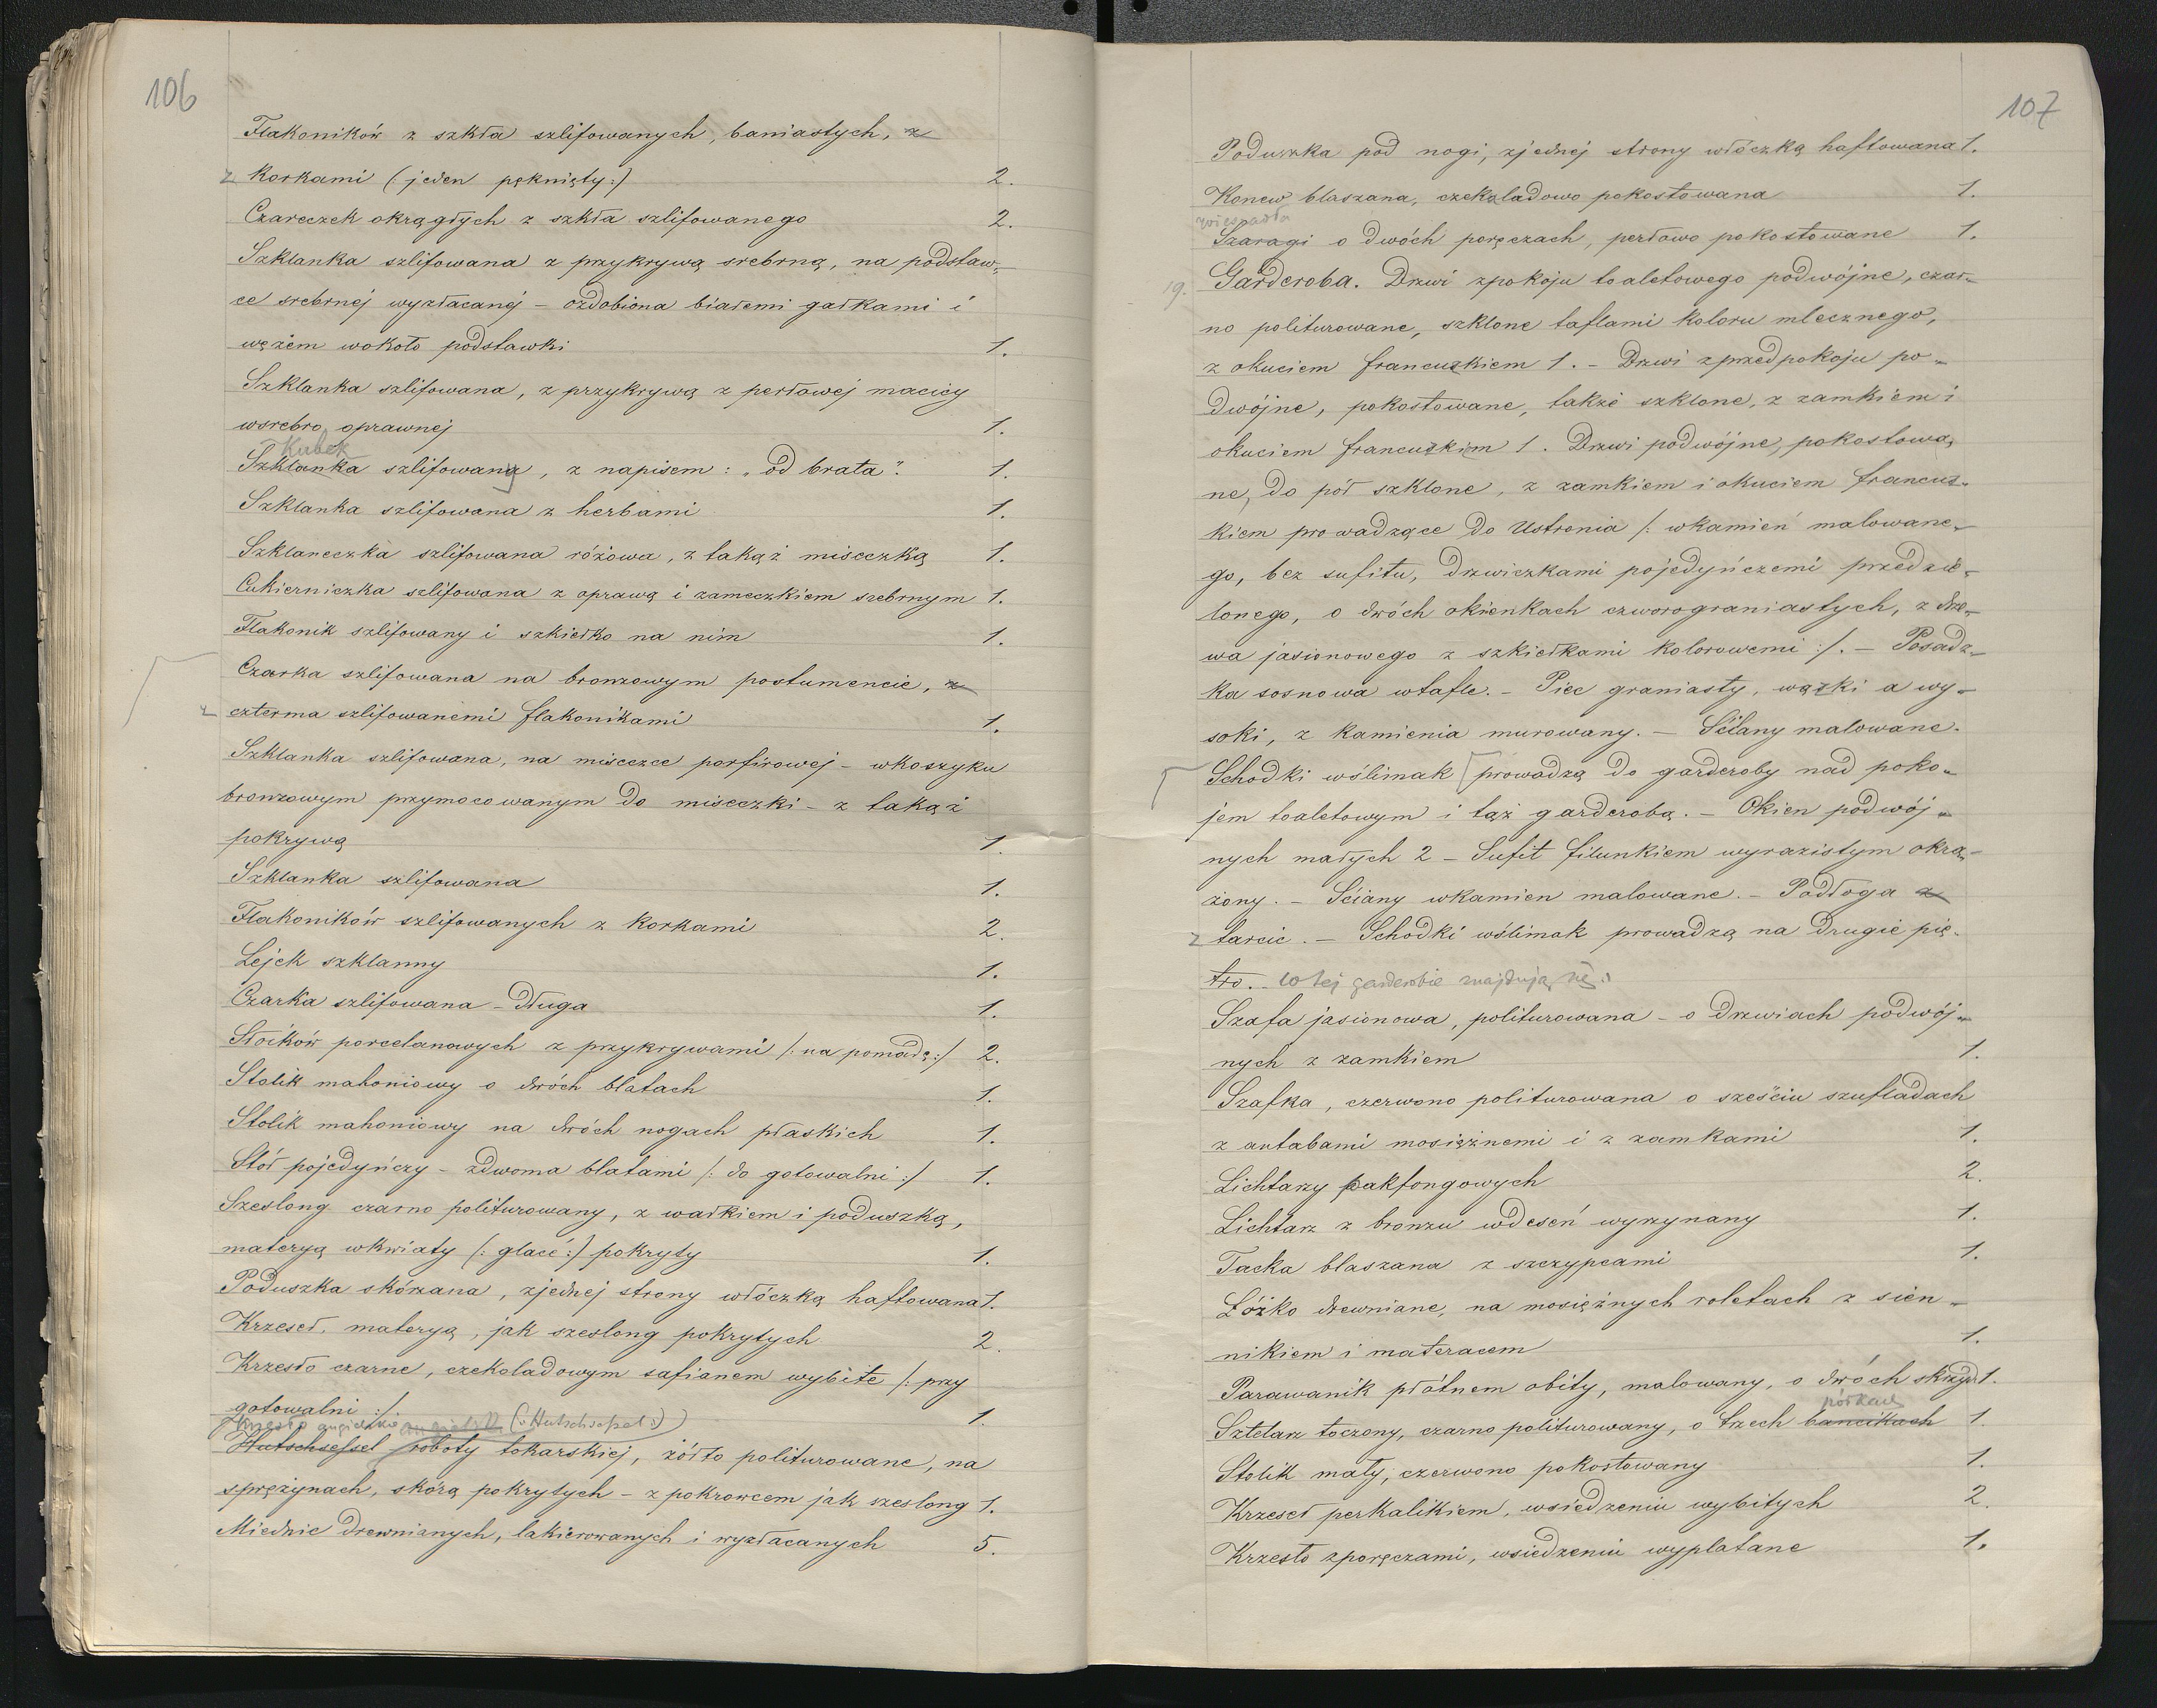 106
Flakoników z szkła szlifowanych, baniastych, z
z korkami (: jeden pęknięty :) 2.
Czareczek okrągłych z szkła szlifowanego 2.
Szklanka szlifowana z przykrywą srebrną, na podstaw-
ce srebrnej wyzłacanej – ozdobiona białemi gałkami i
wężem wokoło podstawki 1.
Szklanka szlifowana, z przykrywą z perłowej macicy
wsrebro oprawnej 1.
Kubek
Szklanka szlifowany, z napisem: „od brata". 1.
Szklanka szlifowana z herbami 1.
Szklaneczka szlifowana różowa, z takąż miseczką 1.
Cukierniczka szlifowana z oprawą i zameczkiem srebrnym 1.
Flakonik szlifowany i szkiełko na nim 1.
Czarka szlifowana na bronzowym postumencie, z
z czterma szlifowanemi flakonikami 1.
Szklanka szlifowana, na miseczce porfirowej – wkoszyku
bronzowym przymocowanym do miseczki – z takąż
pokrywą 1.
Szklanka szlifowana 1.
Flakoników szlifowanych z korkami 2.
Lejek szklanny 1.
Czarka szlifowana – długa 1.
Słoików porcelanowych z przykrywami /: na pomadę :/ 2.
Stolik mahoniowy o dwóch blatach 1.
Stolik mahoniowy na dwóch nogach płaskich 1.
Stół pojedyńczy – zdwoma blatami /: do gotowalni :/ 1.
Szeslong czarno politurowany, z wałkiem i poduszką,
materyą wkwiaty (: glacé :) pokryty 1.
Poduszka skórzana, zjednej strony włóczką haftowana 1.
Krzeseł, materyą, jak szeslong pokrytych 2.
Krzesło czarne, czekoladowym safianem wybite /: przy
gotowalni :/. 1.
Krzesło angielskie (: Hutschsesel :)
Hutschsessel roboty tokarskiej, żółto politurowane, na
sprężynach, skórą pokrytych – z pokrowcem jak szeslong 1.
Miednic drewnianych, lakierowanych i wyzłacanych 5.
107
Poduszka pod nogi, zjednej strony włóczką haftowana 1.
Konew blaszana, czekoladowo pokostowana 1.
Szaragi o dwóch poręczach, perłowo pokostowane 1.
19. Garderoba. Drzwi zpokoju toaletowego podwójne, czar-
no politurowane, szklone taflami koloru mlecznego,
z okuciem francuzkiem 1. – Drzwi zprzedpokoju po-
dwójne, pokostowane, także szklone, z zamkiem i
okuciem francuzkim 1. Drzwi podwójne, pokostowa-
ne, do pół szklone, z zamkiem i okuciem francus-
kiem prowadzące do Ustronia /: wkamień malowane-
go, bez sufitu, drzwiczkami pojedyńczemi przedzie-
lonego, o dwóch okienkach czworograniastych, z drze-
wa jasionowego z szkiełkami kolorowemi :/. – Posadz-
ka sosnowa wtafle. – Piec graniasty, wązki a wy-
soki, z kamienia murowany. – Ściany malowane.
Schodki wślimak prowadzą do garderoby nad poko-
jem toaletowym i tąż garderobą. – Okien podwój-
nych małych 2 – Sufit filunkiem wyrazistym okrą-
żony. – Ściany wkamien malowane. – Podłoga z
z tarcic. – Schodki wślimak prowadzą na drugie pię-
tro. w tej garderobie znajdują się:
Szafa jasionowa, politurowana – o drzwiach podwój-
nych z zamkiem 1.
Szafka, czerwono politurowana o sześciu szufladach
z antabami mosiężnemi i z zamkami 1.
Lichtarzy pakfongowych 2.
Lichtarz z bronzu wdeseń wyrzynany 1.
Tacka blaszana z szczypcami 1.
Łóżko drewniane, na mosiężnych roletach z sien-
nikiem i materacem 1.
Parawanik płótnem obity, malowany, o dwóch skrzyd. 1.
półkach
Sztelarz toczony, czarno politurowany, o trzech bancikach 1.
Stolik mały, czerwono pokostowany 1.
Krzeseł perkalikiem, wsiedzeniu wybitych 2.
Krzesło zporęczami, wsiedzeniu wyplatane 1.